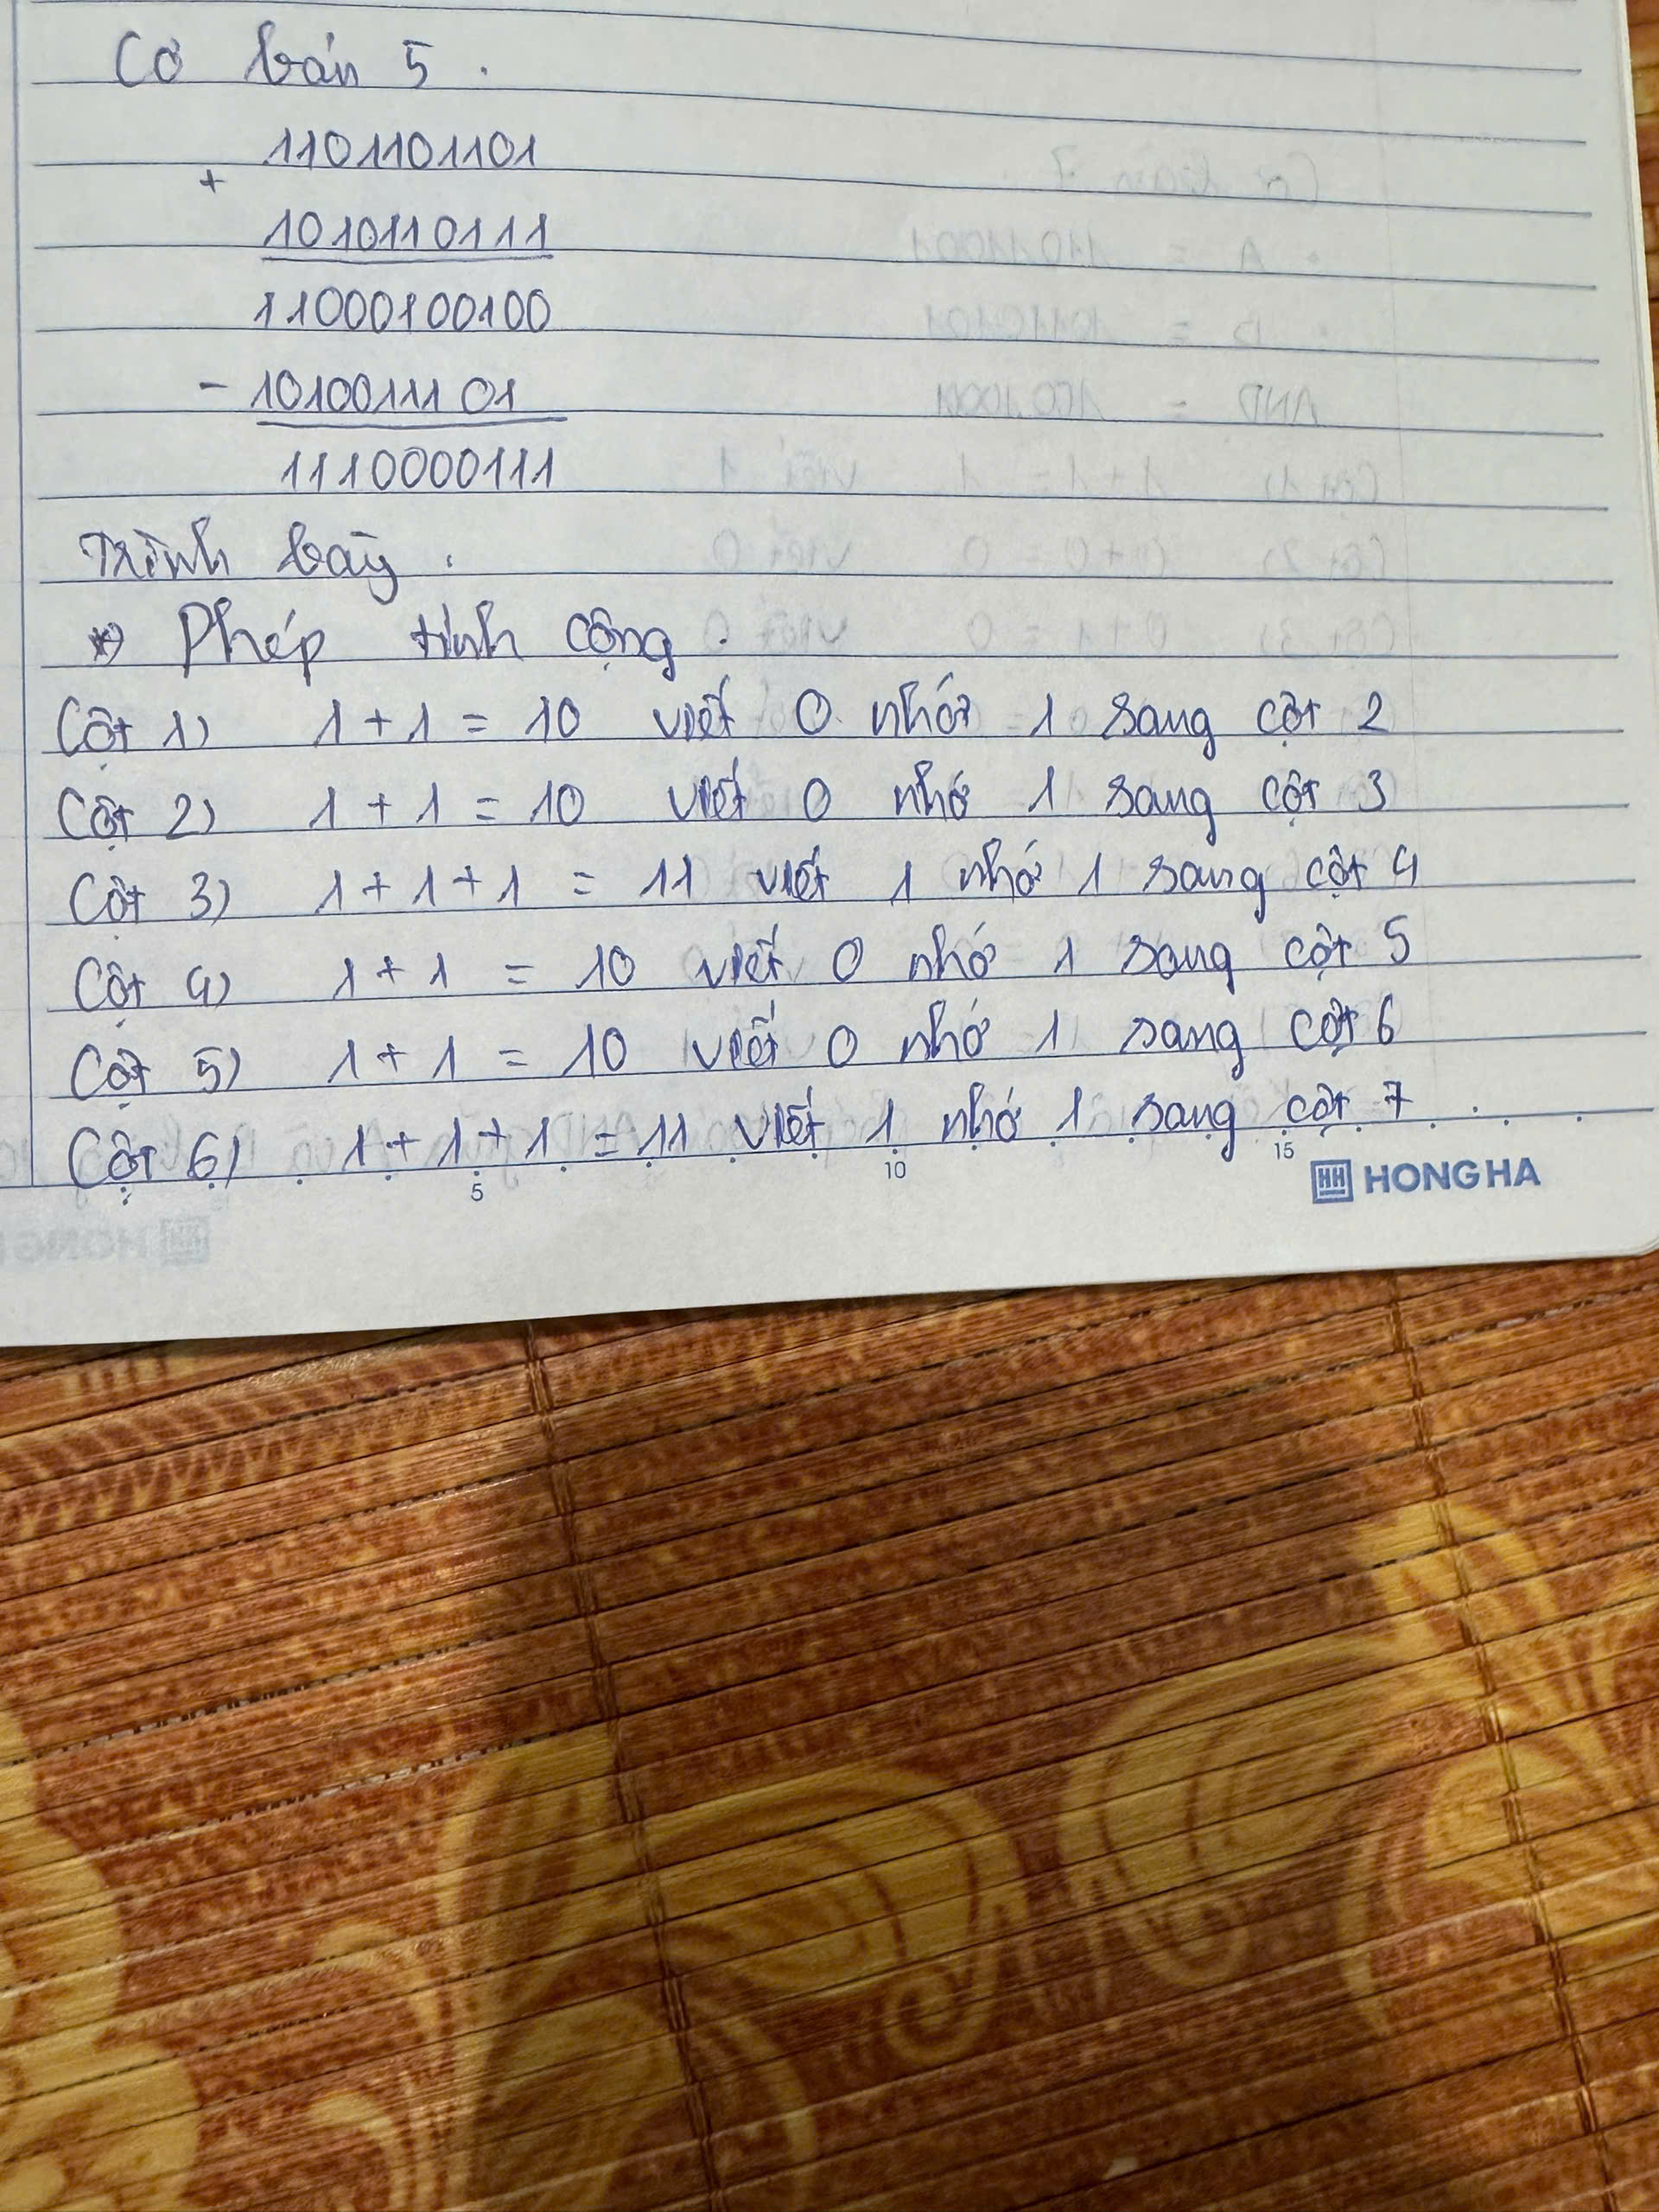 Cơ bản 5.
1101101101
+
1010110111
11000100100
- 1010011101
1110000111
Trình bày.
* Phép tính cộng.
Cột 1) 1 + 1 = 10 viết 0 nhớ 1 sang cột 2
Cột 2) 1 + 1 = 10 viết 0 nhớ 1 sang cột 3
Cột 3) 1 + 1 + 1 = 11 viết 1 nhớ 1 sang cột 4
Cột 4) 1 + 1 = 10 viết 0 nhớ 1 sang cột 5
Cột 5) 1 + 1 = 10 viết 0 nhớ 1 sang cột 6
Cột 6) 1 + 1 + 1 = 11 viết 1 nhớ 1 sang cột 7
5 10 15
HH HONG HA